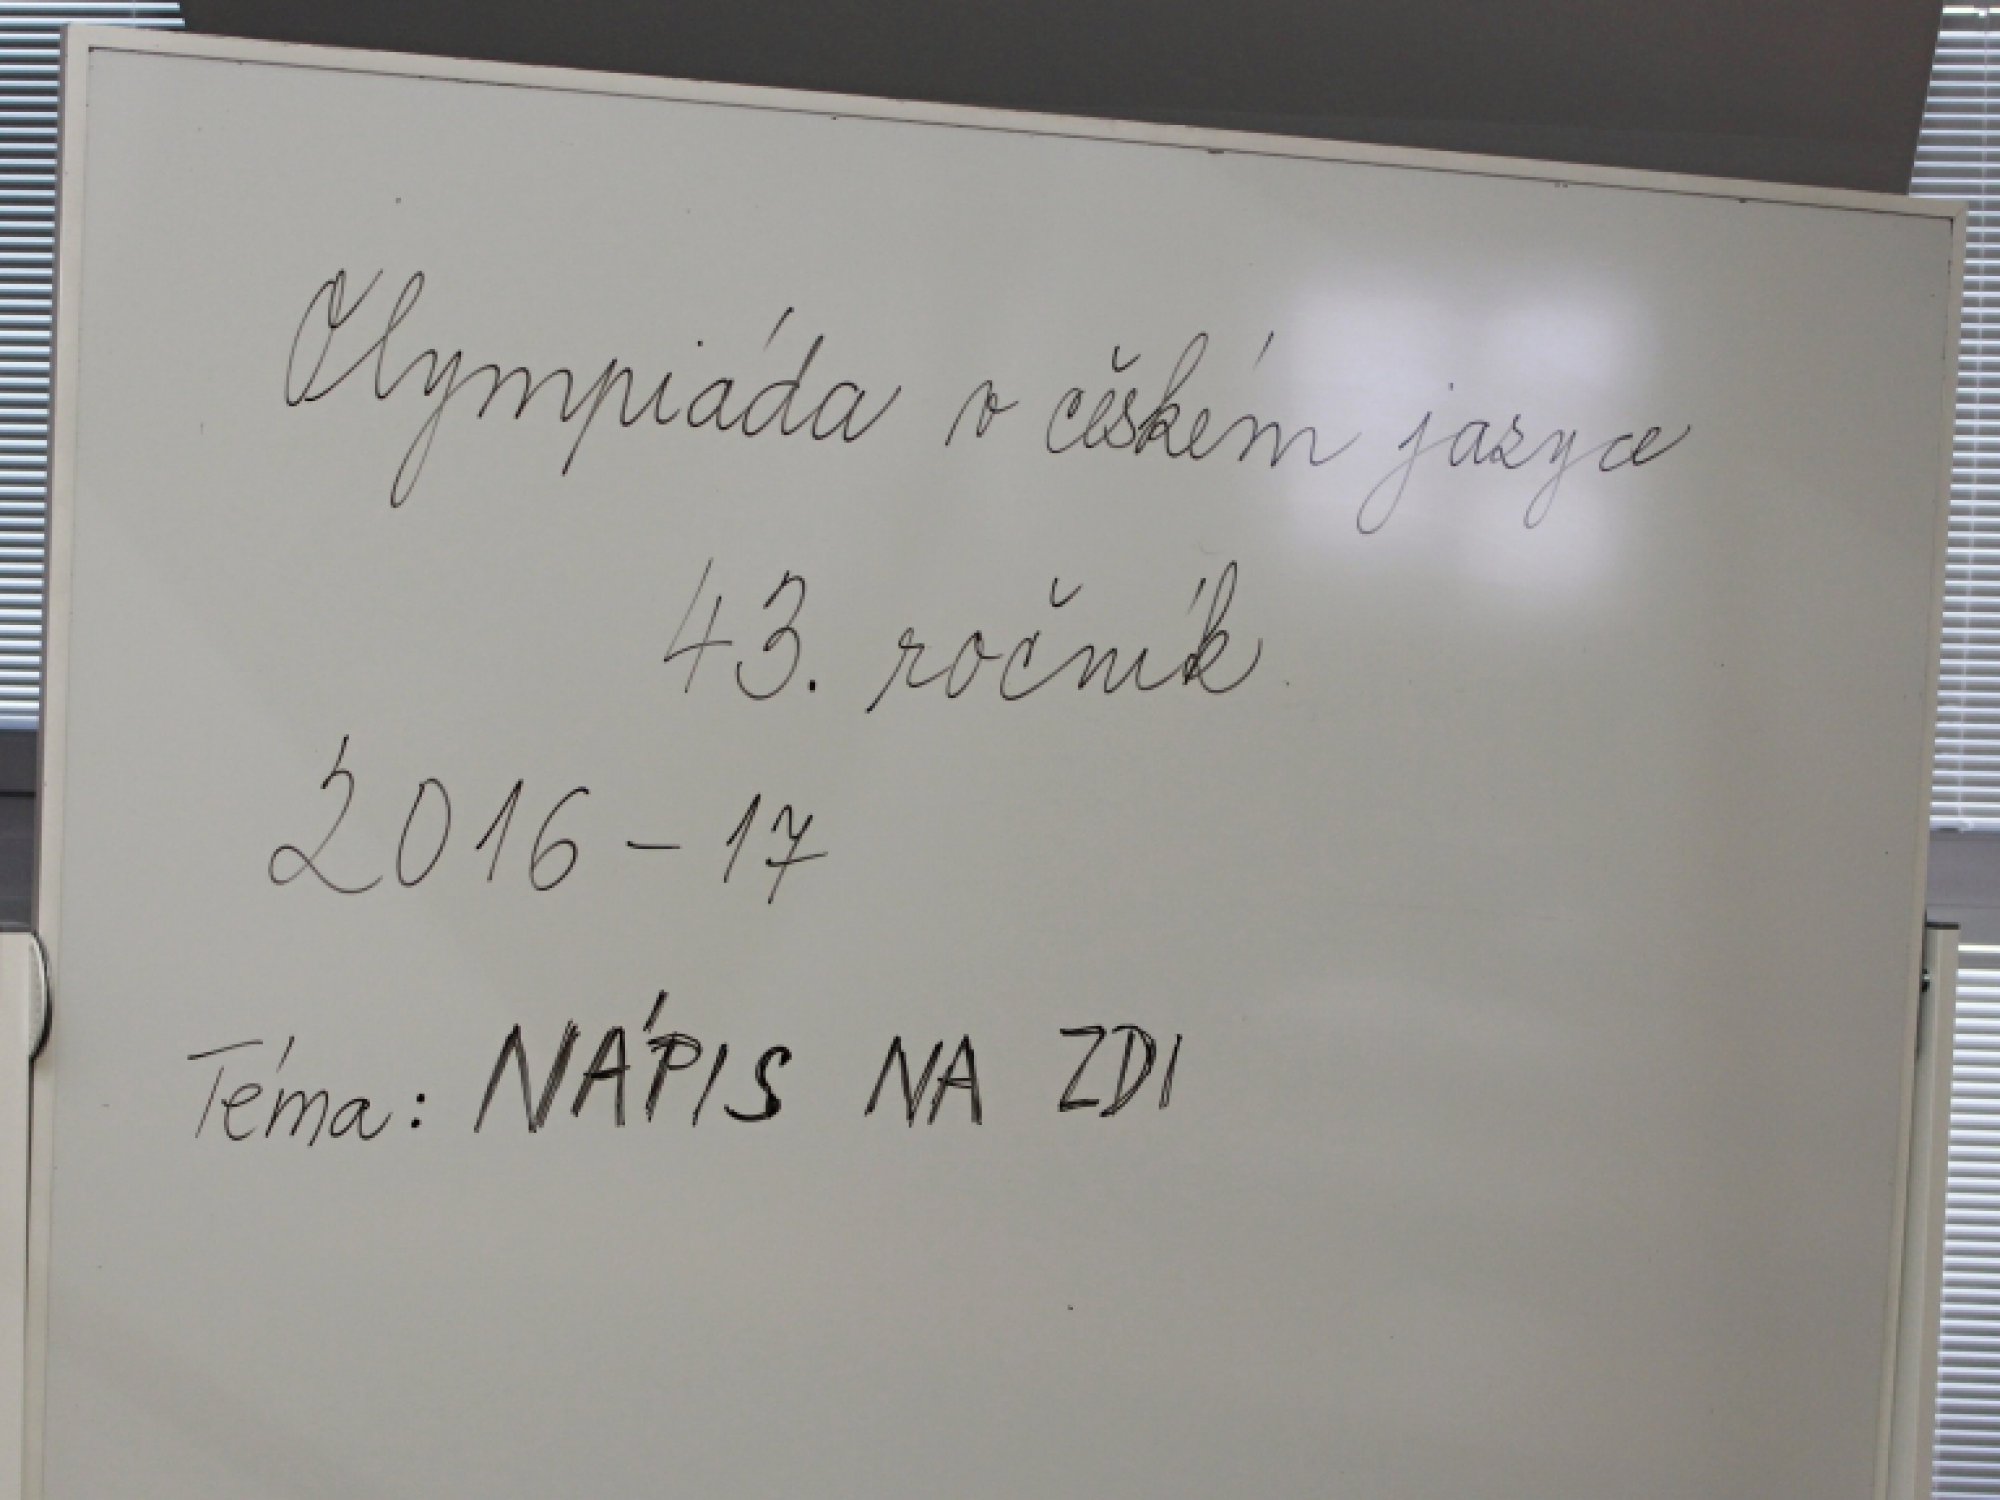 Olympiáda v českém jazyce
43. ročník
2016 - 17
Téma: NÁPIS NA ZDI